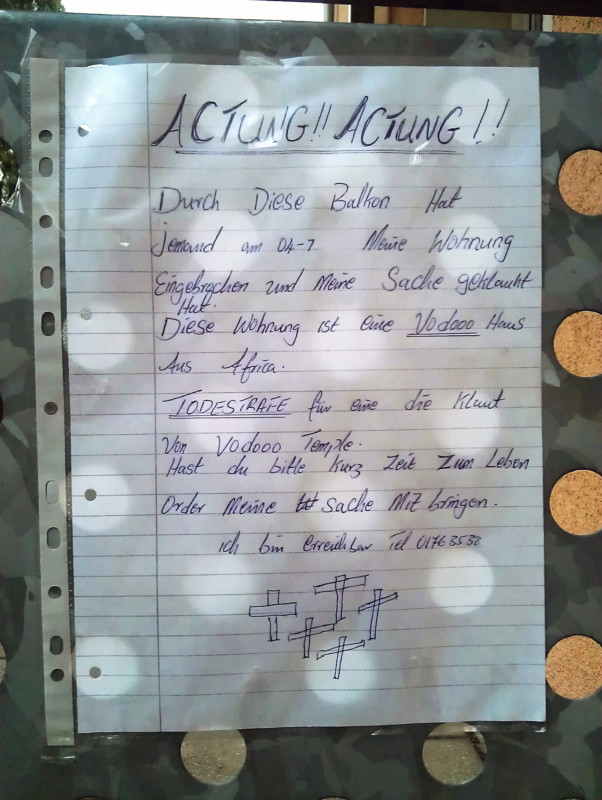 ACTUNG!! ACTUNG!!
Durch Diese Balkon Hat
jemand am 04-7 Meine Wohnung
Eingebrochen und Meine Sache geklaut
Hat.
Diese Wohnung ist eine Vodooo Haus
Aus Africa.
TODESTRAFE für eine die Klaut
Von Vodooo Temple.
Hast du bitte kurz Zeit Zum Leben
Order Meine Sache Mit bringen.
ich bin erreichbar Tel 0176 3532